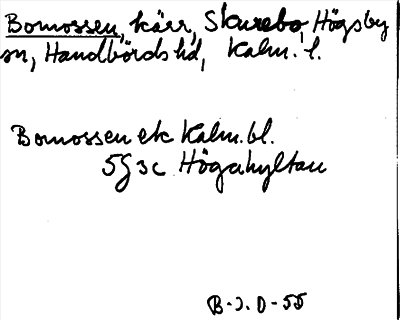 Bomossen, kärr, Skurebo, Högsby
sn, Handbörds hd, Kalm. l.
Bomossen ek Kalm. bl.
5G3c Högahyltan
B-J. O-55